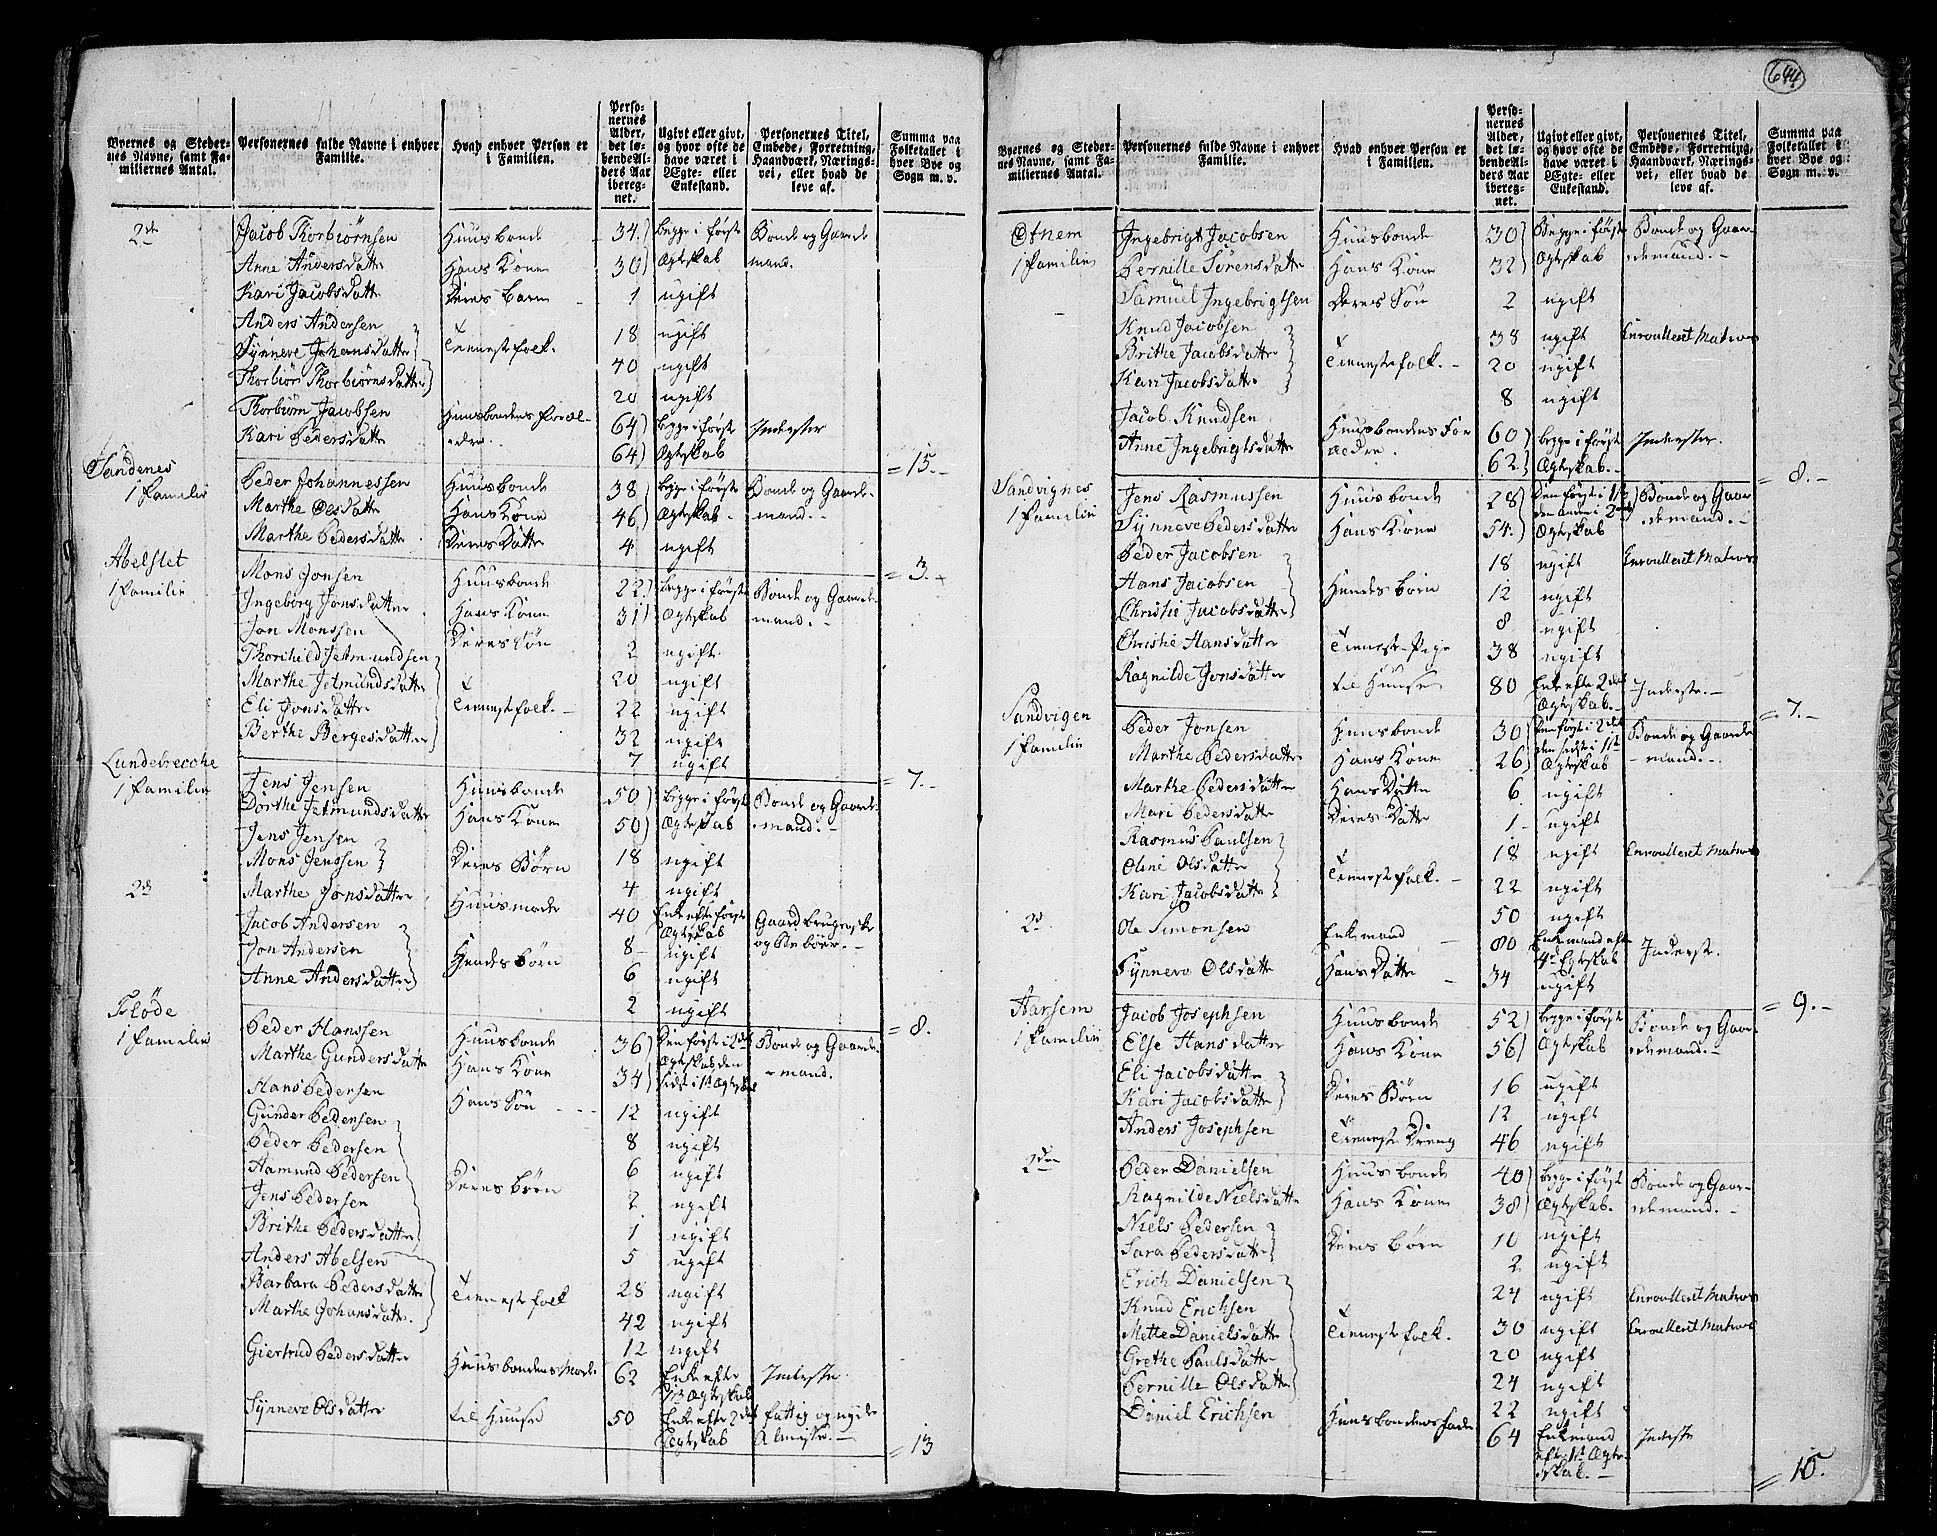 Byernes og Stedernes Navne, samt Familiernes Antal.
Personernes fulde Navne i enhver Familie.
Hvad enhver Person er i Familien.
Personernes Alder, det løbende Alders Aar iberegnet.
Ugivt eller givt, og hvor ofte de have været i Ægte- eller Enkestand.
Personernes Titel, Embede, Forretning, Haandværk, Næringsvei, eller hvad de leve af.
Summa paa Folketallet i hver Bye og Sogn m. v.
2de Jacob Thorbiørnsen Huusbonde 34 begge i første Bonde og Gaarde
Anne Andersdatter Hans Kone 30 Ægteskab mand.
Kari Jacobsdatter Deres barn 1 ugift
Anders Andersen 18 ugift
Synneve Johansdatter Tienestefolk. 40 ugift
Thorbiør Thorbiørnsdatter 20 ugift
Thorbiørn Jacobsen Huusbondens foræl- 64 begge i første Inderster
Kari Pedersdatter ældre. 64 Ægteskab
= 15.
Sandenes
1 Familie Peder Johannessen Huusbonde 38 begge i første Bonde og Gaarde-
Marthe Olsdatter Hans Kone 46 Ægteskab mand.
Marthe Pedersdatter Deres Datter 4 ugift
= 3.
Abelslet
1 Familie Mons Jonsen Huusbonde 22 begge i første Bonde og Gaarde-
Ingeborg Jonsdatter Hans Kone 31 Ægteskab mand.
Jon Monssen Deres Søn 2 ugift
Thorchild Jetmundsen 20 ugift
Marthe Jetmundsdatter Tienestefolk. 22 ugift
Eli Jonsdatter 32 ugift
Berthe Bergesdatter 7 ugift
= 7.
Lundebrecche
1 Familie Jens Jensen Huusbonde 50 begge i første Bonde og Gaarde-
Dorthe Jetmundsdatter Hans Kone 50 Ægteskab mand.
Jens Jensen 18 ugift
Mons Jenssen Deres Børn 4 ugift
2de Marthe Jonsdatter Huusmoder 40 Enke efter første Ægteskab Gaardbrugerske
Jacob Andersen 8 ugift
Jon Andersen Hendes børn 6 ugift
Anne Andersdatter 2 ugift
= 8.
Fløde
1 Familie Peder Hanssen Huusbonde 36 Den første i 2det Bonde og Gaarde-
Marthe Gundersdatter Hans Kone 34 Ægteskab den sidst i 1ste Ægteskab mand.
Hans Pedersen Hans Søn 12 ugift
Gunder Pedersen 8 ugift
Peder Pedersen 6 ugift
Aamund Pedersen Deres børn 2 ugift
Jens Pedersen 1 ugift
Brithe Pedersdatter 5 ugift
Anders Abelsen 28 ugift
Barbara Pedersdatter Tienestefolk 42 ugift
Marthe Johansdatter 12 ugift
Giertrud Pedersdatter Huusbondens Moder 62 Enke efter 1ste Ægteskab Inderste.
Synneve Olsdatter til Huuse 50 Enke efter 2det Ægteskab fattig og nyder Almisse.
= 13
644
Byernes og Stedernes Navne, samt Familiernes Antal.
Personernes fulde Navne i enhver Familie.
Hvad enhver Person er i Familien.
Personernes Alder, det løbende Alders Aar iberegnet.
Ugivt eller givt, og hvor ofte de have været i Ægte- eller Enkestand.
Personernes Titel, Embede, Forretning, Haandværk, Næringsvei, eller hvad de leve af.
Summa paa Folketallet i hver Bye og Sogn m. v.
Othem
1 Familie Ingebrigt Jacobsen Huusbonde 30 Begge i første Bonde og Gaar-
Pernille Sørensdatter Hans Kone 32 Ægteskab demand.
Samuel Ingebrigtsen Deres Søn 2 ugift
Knud Jacobsen 38 ugift Enroulleret Matros
Brithe Jacobsdatter Tienestefolk. 20 ugift
Kari Jacobsdatter 8 ugift
Jacob Knudsen Huusbondens For 60 begge i første Inderster.
Anne Ingebrigtsdatter ældre. 62 Ægteskab.
= 8.
Sandvignes
1 Familie Jens Rasmussen Huusbonde 28 Den første i 1ste Bonde og Gaar
Synneve Pedersdatter Hans Kone 54 den anden i 2det Ægteskab demand.
Peder Jacobsen 18 ugift Enroulleret Matros
Hans Jacobsen Hendes børn 12 ugift
Christie Jacobsdatter 8 ugift
Christie Hansdatter Tieneste-Pige 38 ugift
Ragnilde Jonsdatter til Huuse 80 Enke efter 2det Ægteskab. Inderste.
= 7.
Sandvigen
1 Familie Peder Jonsen Huusbonde 30 Den første i 2det Bonde og Gaarde
Marthe Pedersdatter Hans Kone 26 den sidst i 1ste Ægteskab mand.
Marthe Pedersdatter Hans Datter 6 ugift
Mari Pedersdatter Deres Datter 1 ugift
Rasmus Paulsen 18 ugift Enroulleret Matros
Oline Olsdatter Tienestefolk. 22 ugift
Kari Jacobsdatter 50 ugift
2de Ole Simonsen Enkemand 80 Enkemand efter 4de Ægteskab Inderste.
Synneva Olsdatter Hans Datter 34 ugift
= 9.
Aarsem
1 Familie Jacob Josephsen Huusbonde 52 begge i første Bonde og Gaar-
Else Hansdatter Hans Kone 56 Ægteskab demand.
Eli Jacobsdatter 16 ugift
Kari Jacobsdatter Deres Børn 12 ugift
Anders Josephsen Tieneste Dreng 46 ugift
2den Peder Danielsen Huusbonde 40 begge i første Bonde og Gaar-
Ragnilde Nielsdatter Hans Kone 38 Ægteskab. demand.
Niels Pedersen 10 ugift
Sara Pedersdatter Deres børn 2 ugift
Erich Danielsen 24 ugift Enroulleret Matros
Knud Erichsen 30 ugift Enroulleret Matros
Mette Danielsdatter Tienestefolk. 20 ugift
Grethe Paulsdatter 24 ugift
Pernille Olsdatter 22 ugift
Daniel Erichsen Huusbondens fader 64 Enkemand efter 1ste Ægteskab. Inderste
= 15.